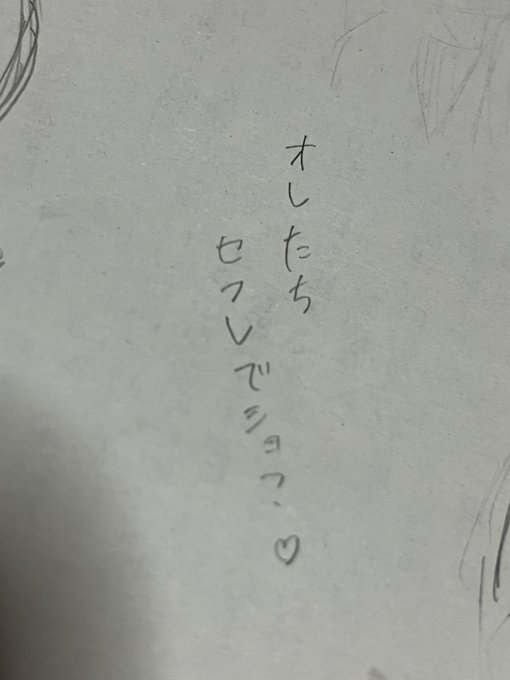 オレたち
セフレでショ?♡